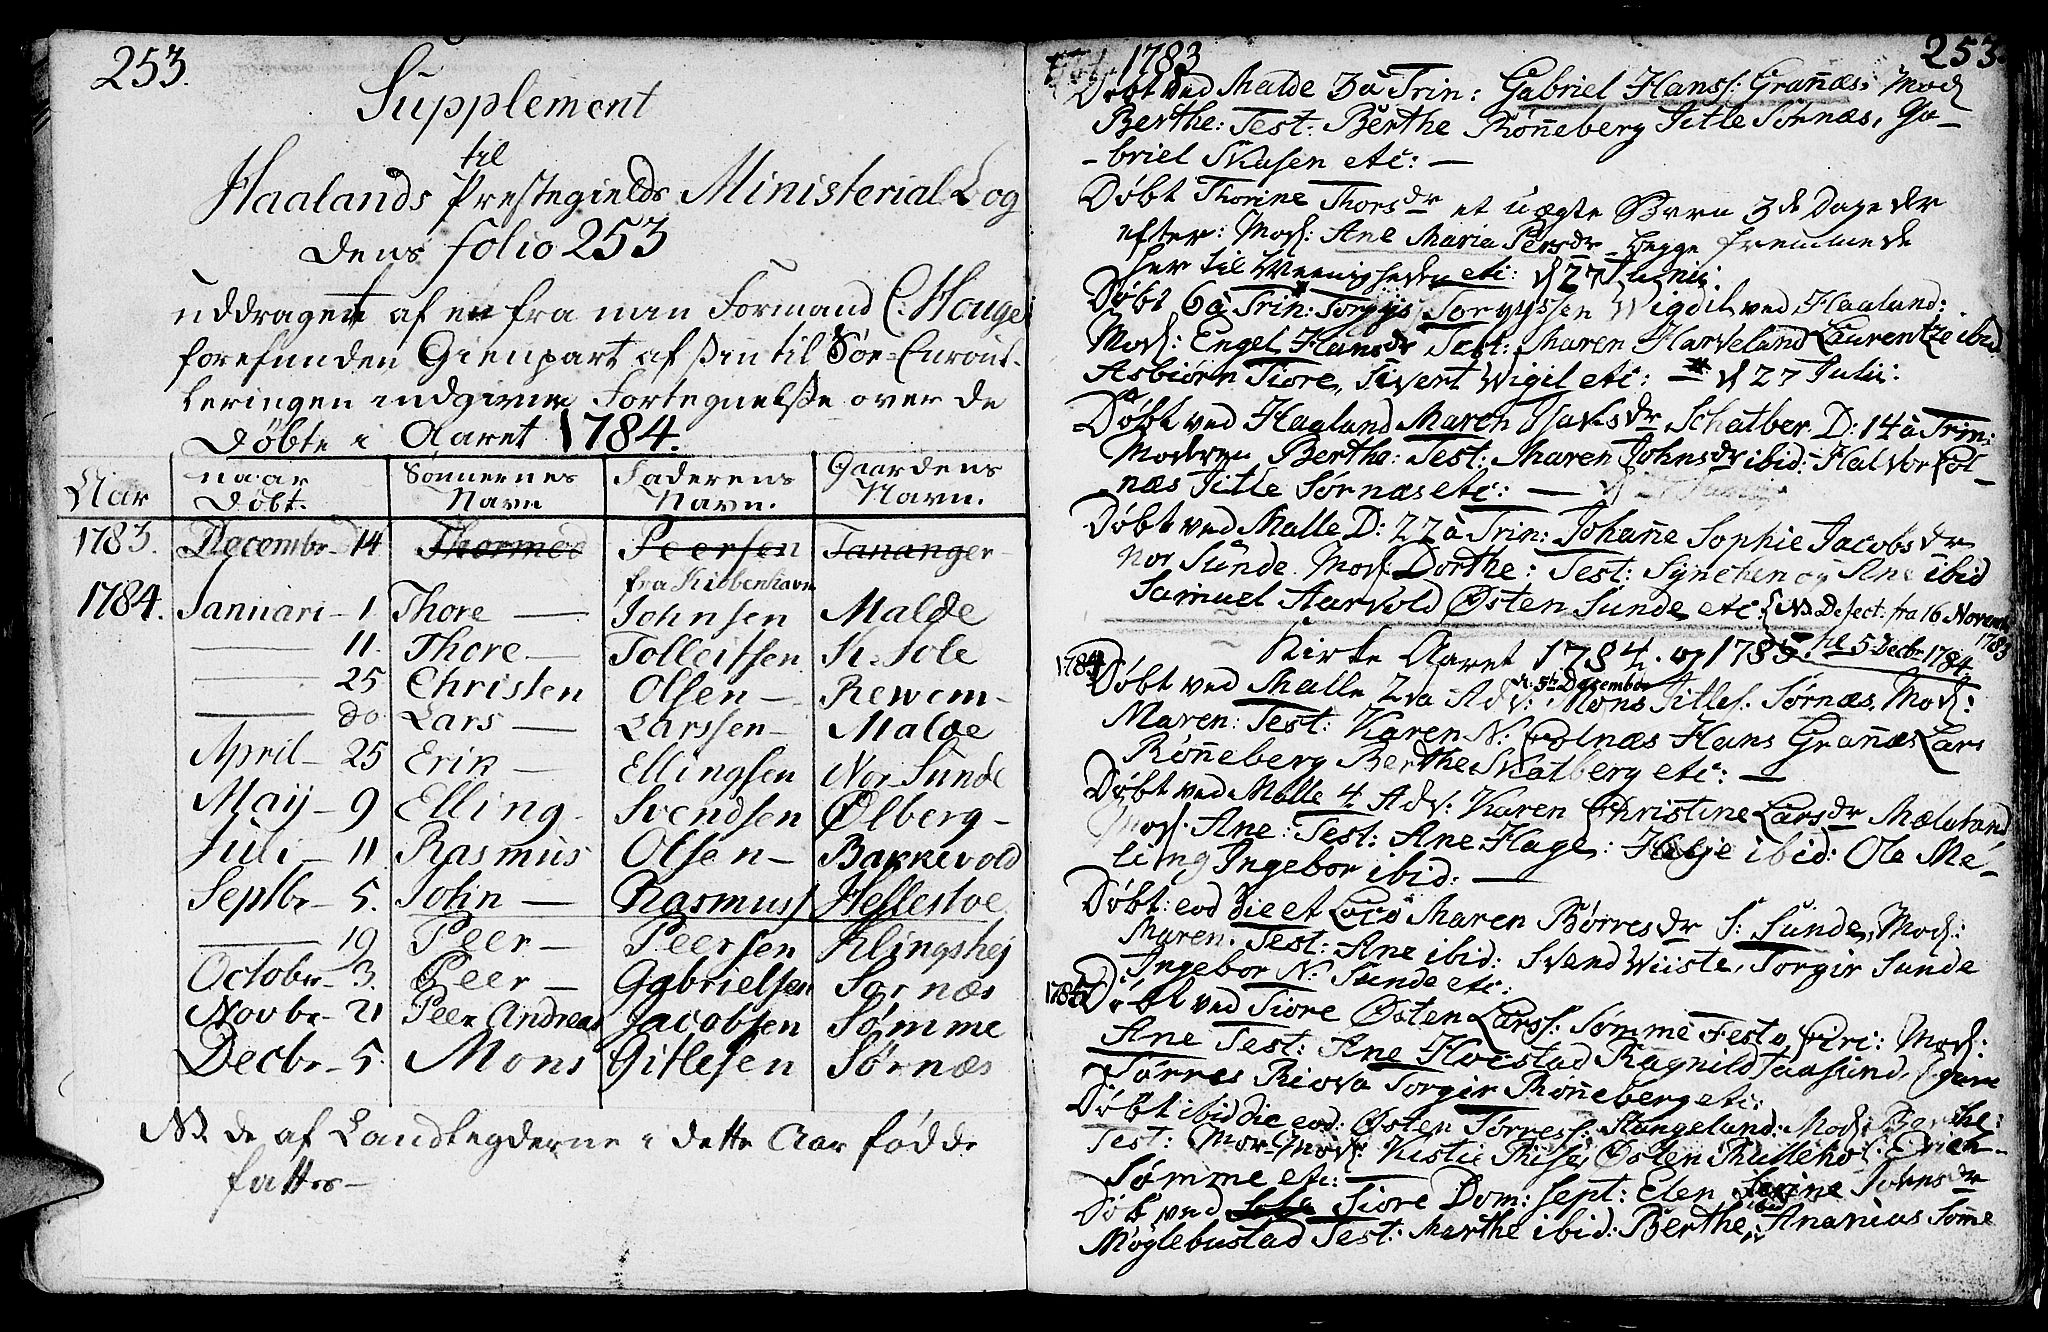 253.
Supplement
til
Haalands Prestegields Ministerial Bog
dens folio 253
uddraget af en fra man Formand C. Houge
forefunden Gienpart af sin til Søe-Enroul-
leringen indgivne Fortegnelse over de
Døbte i Aaret 1784.
Aar naar Døbt. Sønnernes Navn Faderens Navn. Gaardens Navn.
1783. Decembr 14 Thormod Peersen Tananger
fra Kiøbenhavn
1784. Januari - 1 Thore — Johnsen Malde
— 11. Thore — Tolleifsen K. Sole
— 25 Christen Olsen — Rewem-
— do Lars — Larssen — Malde
April - 25 Erik — Ellingsen Nor Sunde
Maij - 9 Elling Svendsen Ølberg -
Juli - 11 Rasmus Olsen — Bakkevold
Septbr - 5. John — Rasmuss Hellestøe
— 19 Peer — Peersen Klingshej
Octobr - 3. Peer — Gabrielsen Sørnæs
Novbr - 21 Peer Andreas Jacobsen Sømme
Decbr - 5. Mons Gitlesen Sørnæs
NB. de af Landlegderne i dette Aar fødde
fattes —
1783 253.
Døbt ved Malde 3 a Trin: Gabriel Hanss: Grannæs: Mod:
Berthe: Test: Berthe Rønneberg Gitle Sørnæs, Ga-
-briel Skasen etc: —
Døbt Thorine Thorsdr et uægte Barn 3de Dage der
efter: Mod: Ane Maria Persdr begge fremmede
her til Meenigheden etc: d 27 Junii:
Døbt 6 a Trin: Torgys Torgyssen Wigdel ved Haaland:
Mod: Engel Hansdr Test: Maren Harveland Laurentze ibid
Asbiørn Tiore, Sivert Wigil etc: — d 27 Julii:
Døbt ved Haaland Maren Isaksdr Schatber. D: 14 a Trin:
Moderen Berthe: Test: Maren Johnsdr ibid: Halvor Fol-
næs Gitle Sørnæs etc: —
Døbt ved Malle D: 22 a Trin: Johanne Sophie Jacobsdr
Nor Sunde. Mod: Dorthe: Test: Synchen og Ane ibid
Samuel Aarvold Østen Sunde etc: NB Defect. fra 16 Novemb 1783
til 5 Decbr 1784
Kirke Aaret 1784. og 1785.
1784 Døbt ved Malle 2 da Adv: d. 5te December Mons Gitles. Sørnæs, Mod:
Maren: Test: Karen N: Folnæs Hans Grannæs Lars
Rønneberg Berthe Skatberg etc: —
Døbt ved Malle 4. Adv: Karen Christine Larsdr Mæleland
Mod. Ane: Test: Ane Hage: Helje ibid: Ole Me-
ling Ingebor ibid: —
Døbt: eod die et Loco Maren Børresdr S: Sunde, Mod:
Maren. Test: Ane ibid: Svend Wiiste, Torgir Sunde
Ingebor N: Sunde etc:
1785 Døbt ved Tiore Østen Larss: Sømme Festo Circ: Mod:
Ane Test: Ane Hoestad Ragnild
Tørres Risva Torgir Rønneberg etc:
Døbt ibid die eod: Østen Tørress: Stangeland: Mod: Berthe:
Test: Mor-Mod: Kistie Østen Erich
Sømme etc: —
Døbt ved Tiore Dom: Sept: Elen Serine Johnsdr
Møglebustad Test: Marthe ibid: Berthe ibid Ananias Sømme